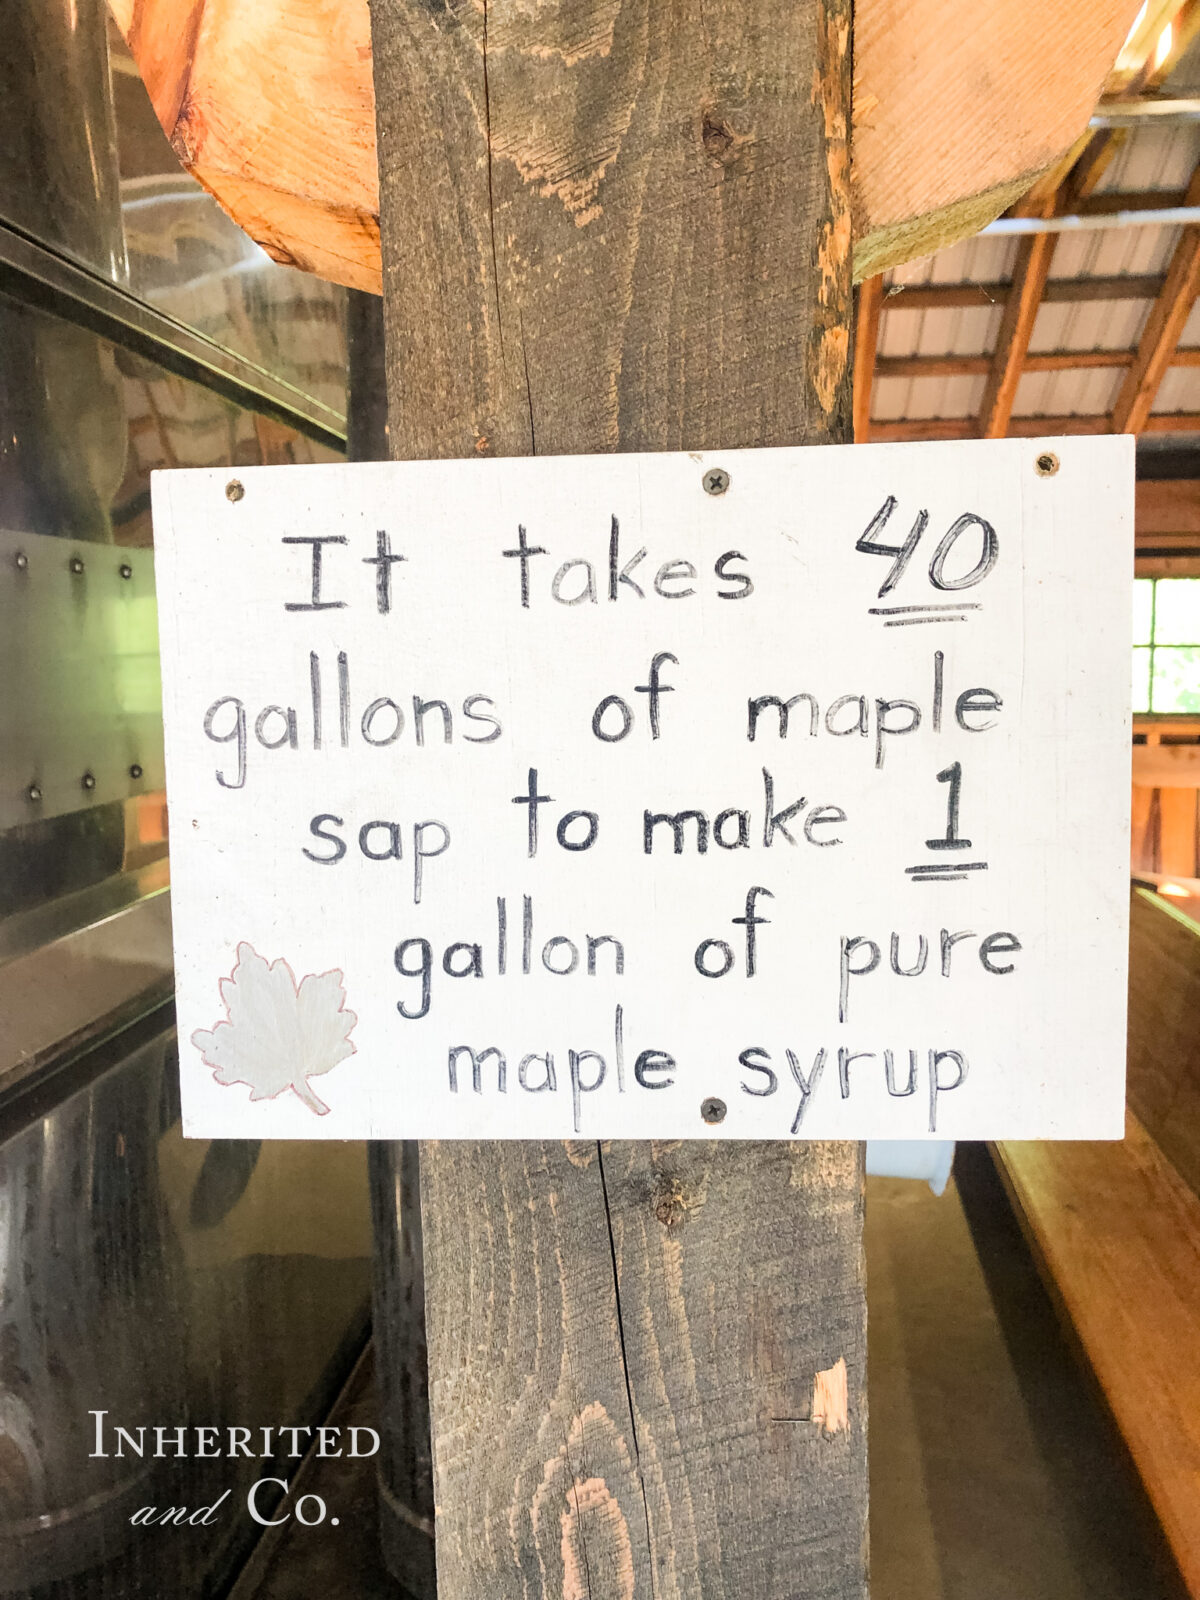 It takes 40
gallons of maple
sap to make 1
gallon of pure
maple syrup
INHERITED
and Co.